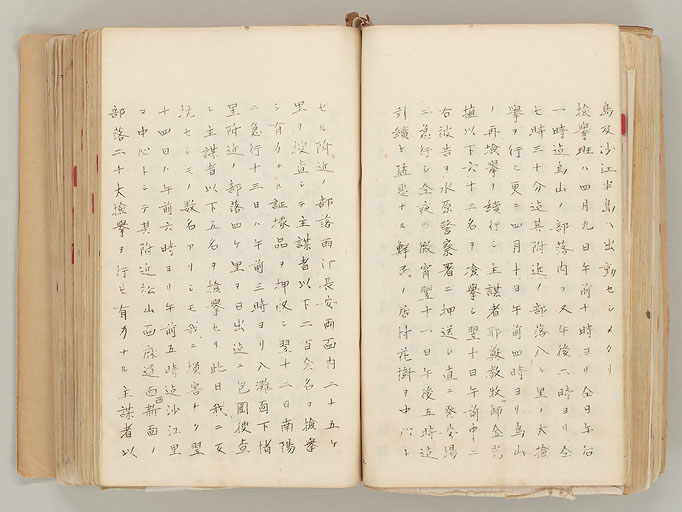 烏及沙江半島ヘ出動セシメタリ
検挙班ハ四月九日午前十時ヨリ仝日午后
一時迄烏山ノ部落内ヲ又午後二時ヨリ仝
七時三十分迄其附近ノ部落八ヶ里ノ大検
挙ヲ行ヒ更ニ四月十日午前四時ヨリ烏山
ノ再検挙ヲ続行シ主謀者耶蘇教牧師金
植以下六十二名ヲ検挙シ翌十日午前中ニ
右被告ヲ水原警察署ニ押送シ直ニ発安場
ニ急行シ仝夜ハ徹宵翌十一日午後五時迄
引続キ ナル鮮民ノ居村花樹ヲ中心ト
セル附近ノ部落雨汀長安両面内二十五ヶ
里ヲ捜査シテ主謀者以下二百余名ヲ検挙
シ有力ナル証拠品ヲ押収シ翌十二日南陽
ニ急行十三日ハ午前三時ヨリ八灘面下楮
里附近ノ部落四ヶ里ヲ日出迄ニ包囲捜査
シ主謀者以下五名ヲ検挙セリ此日我ニ反
抗セシモノ数名アリシモ我ニ損害ナク翌
十四日ハ午前六時ヨリ午前五時迄沙江里
ヲ中心トシテ其附近松山面麻道面西新面ノ
部落ニ十大検挙ヲ行ヒ有力ナル主謀者以